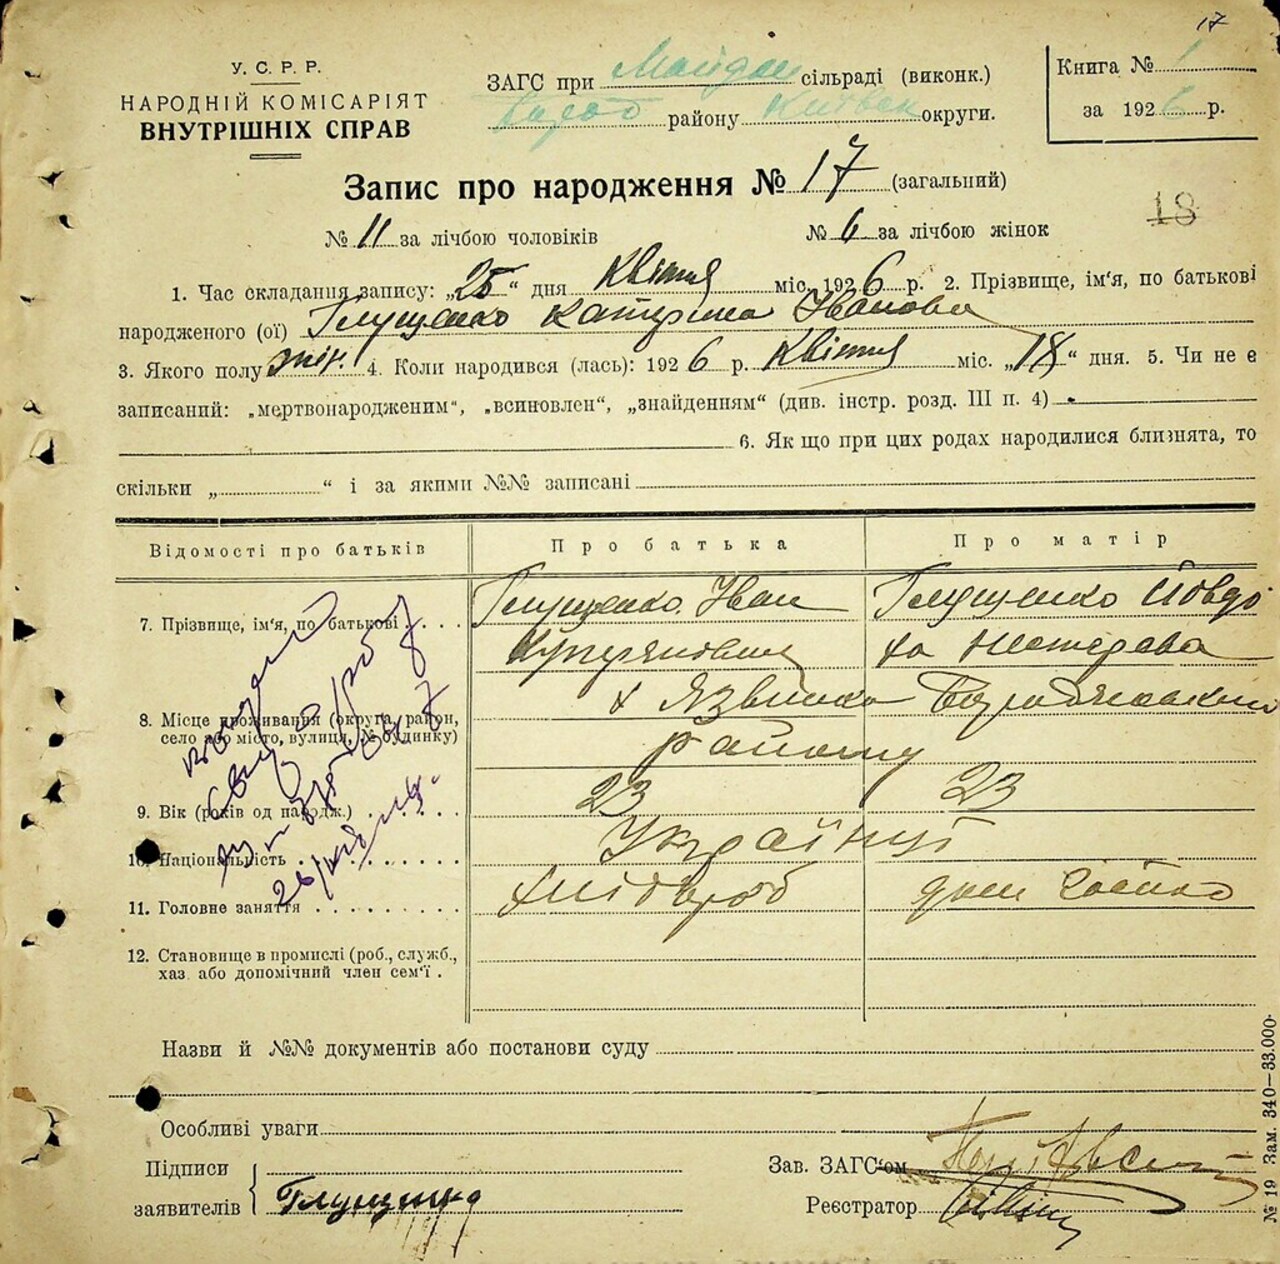 17
У. С. Р. Р.
НАРОДНІЙ КОМІСАРІЯТ
ВНУТРІШНІХ СПРАВ
ЗАГС при Майдан сільраді (виконк.)
Бород району Київськ округи.
Книга № 1
за 1926 р.
Запис про народження № 17 (загальний)
18
№ 11 за лічбою чоловіків № 6 за лічбою жінок
1. Час складання запису: „25“ дня Квітня міс. 1926 р. 2. Прізвище, ім'я, по батькові
народженого (ої) Глущенко Катерина Іванова
3. Якого полу жін. 4. Коли народився (лась): 1926 р. Квітня міс. „18“ дня. 5. Чи не є
записаний: „мертвонародженим“, „всиновлен“, „знайденням“ (див. інстр. розд. III п. 4)
6. Як що при цих родах народилися близнята, то
скільки „ “ і за якими №№ записані
Відомості про батьків Про батька Про матір
7. Прізвище, ім'я, по батькові . . . .
Глущенко Иван
Куприянович
Глущенко Йовдо
ха Нестерова
8. Місце проживання (округа, район,
село або місто, вулиця, № будинку)
х Язвинка Бородянського
району
9. Вік (років од народж.) . . . . . . 23 23
10. Національність . . . . . . . Українці
11. Головне заняття . . . . . . . . хлібороб дом хазяйка
12. Становище в промислі (роб., служб.,
хаз. або допомічний член сем'ї .
Назви й №№ документів або постанови суду
Особливі уваги
Підписи
заявителів
Глущенко
Зав. ЗАГС'ом
Реєстратор
№ 19 Зам. 340—33.000·